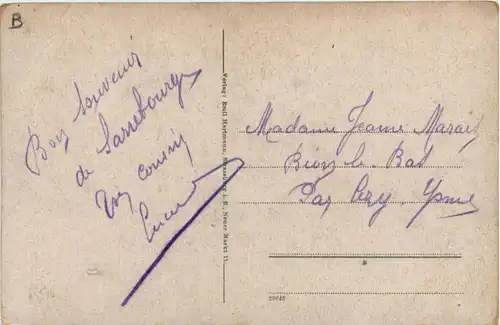 B
Bon Souvenir
de Sarrebourg
cousin
Verlag: Emil Hartmann, Strassburg i. E., Neuer Markt 11.
Madame Jeanne Marais
Bien le Bas
Par Cézy, Yonne